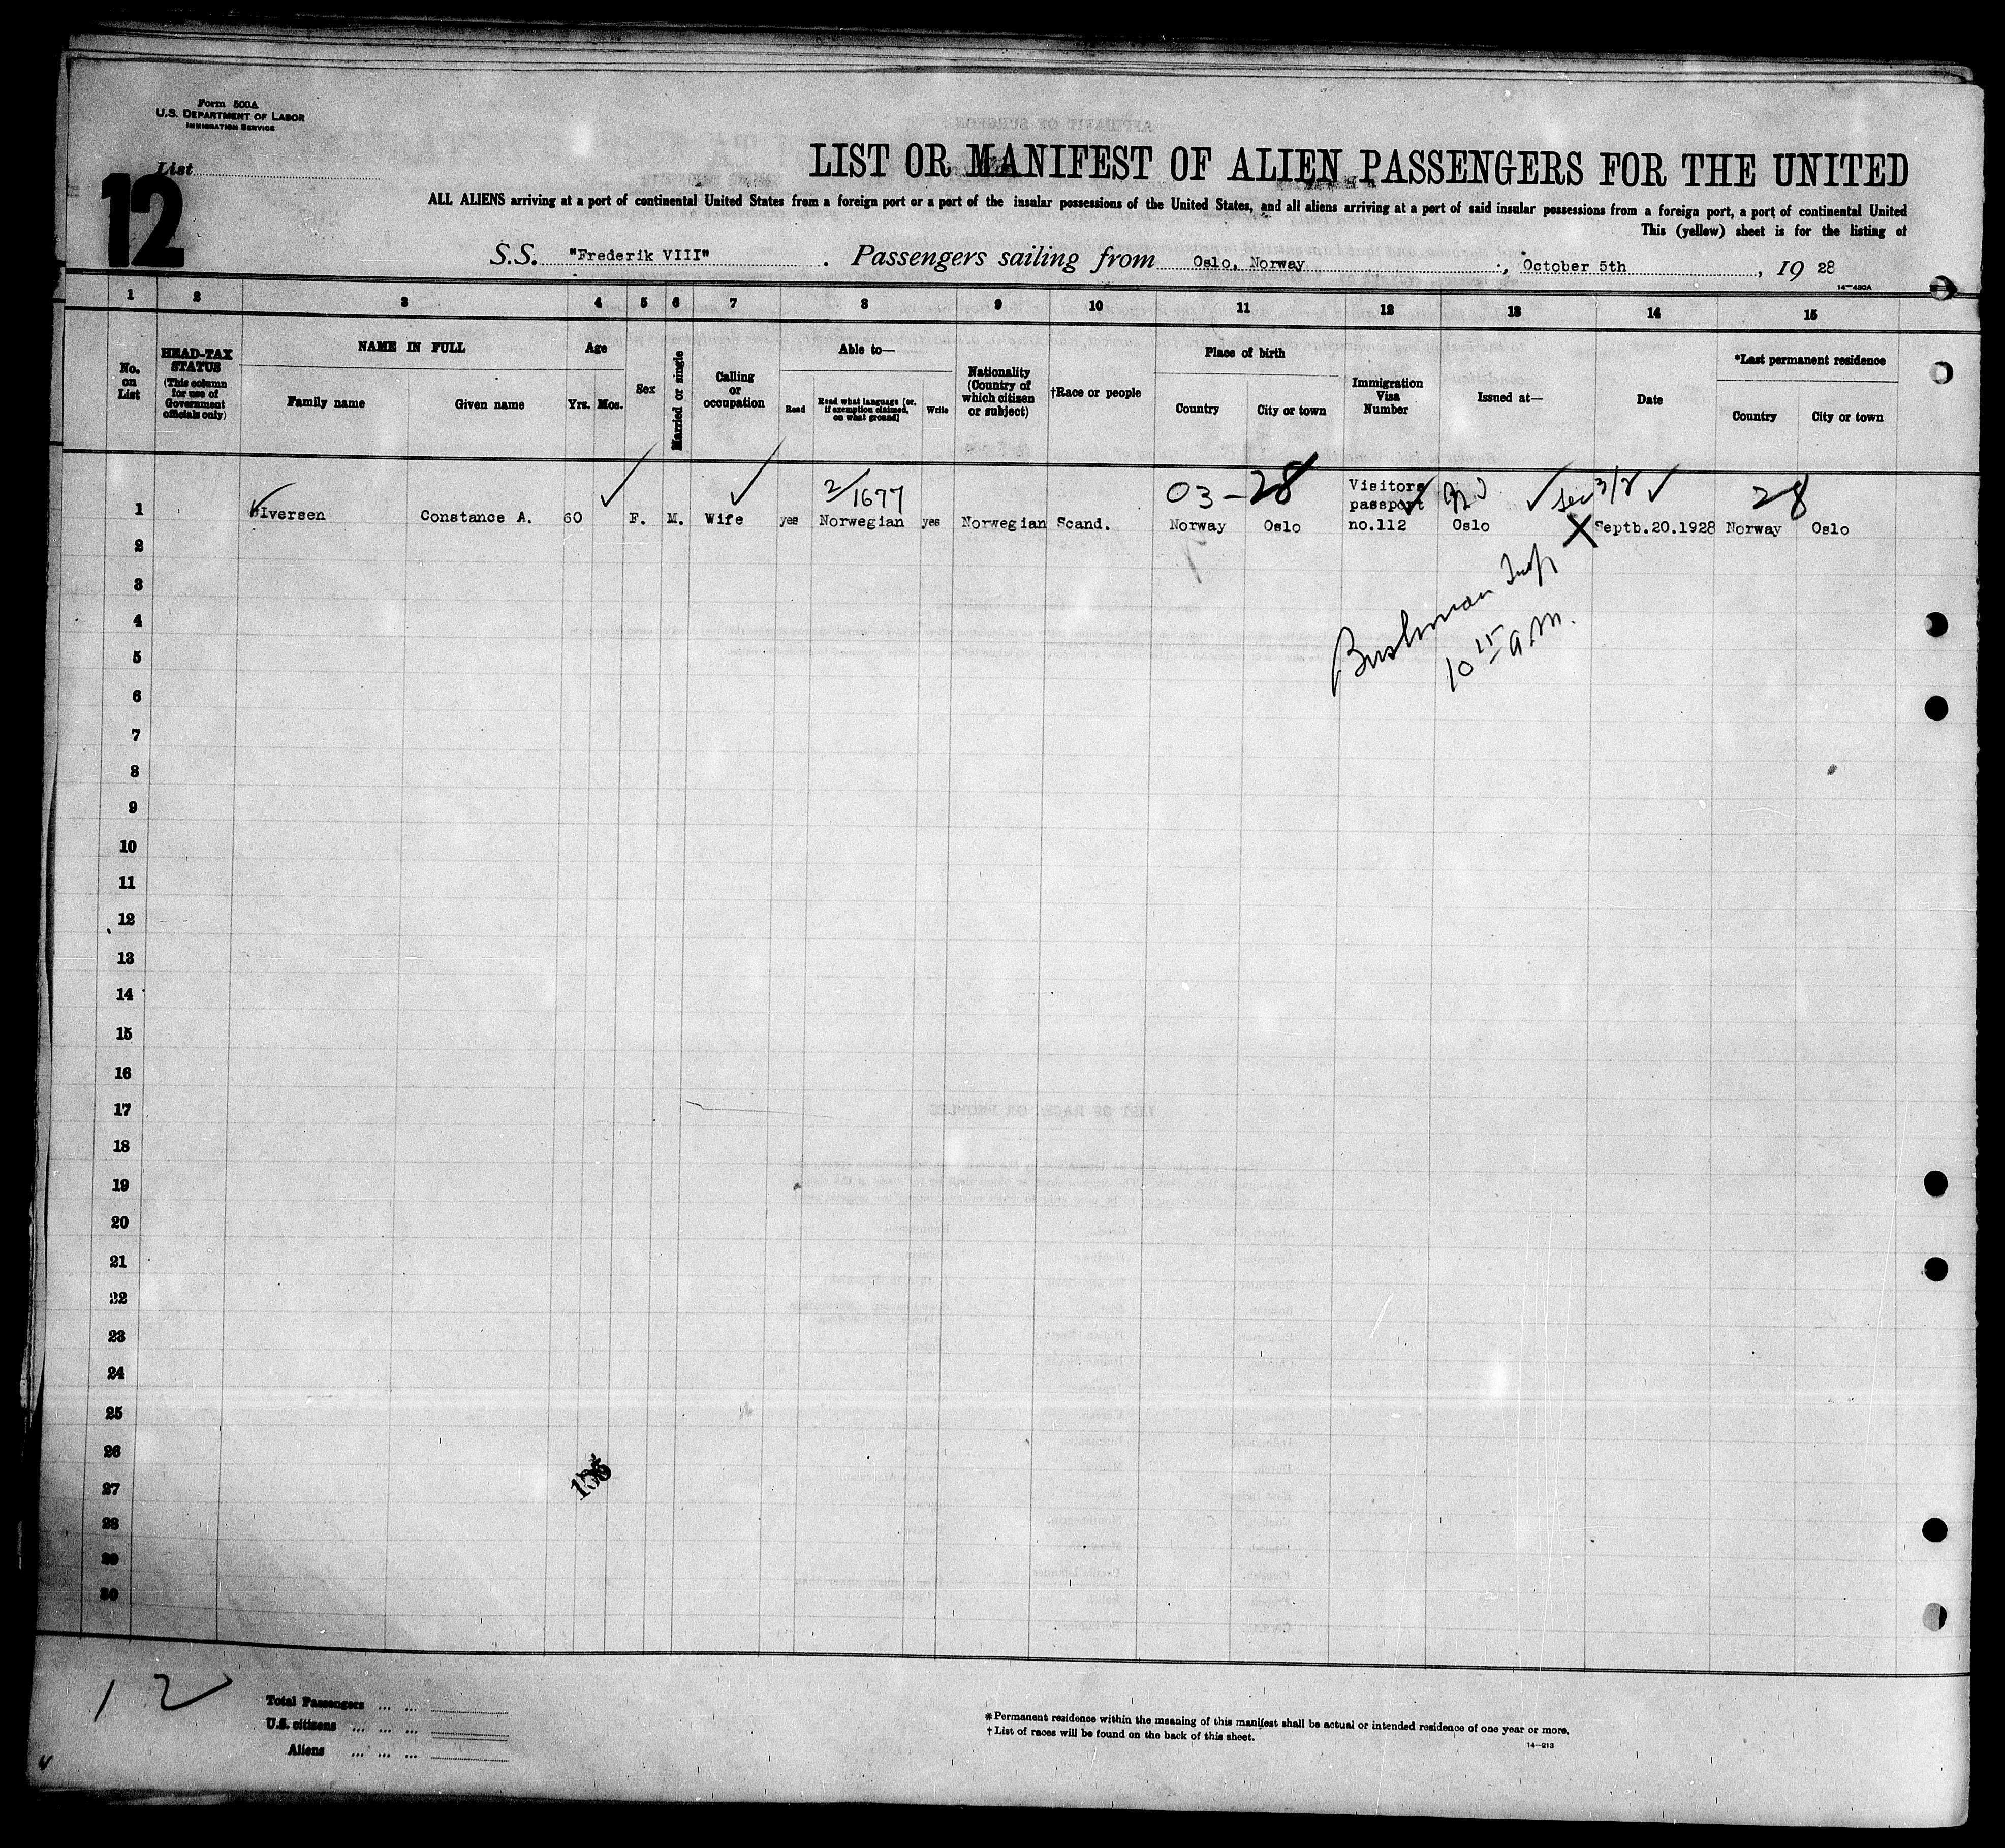 Form 500A
U.S. DEPARTMENT OF LABOR
IMMIGRATION SERVICE
List
12
LIST OR MANIFEST OF ALIEN PASSENGERS FOR THE UNITED
ALL ALIENS arriving at a port of continental United States from a foreign port or a port of the insular possessions of the United States, and all aliens arriving at a port of said insular possessions from a foreign port, a port of continental United
This (yellow) sheet is for the listing of
S.S. "Frederik VIII". Passengers sailing from Oslo, Norway, October 5th, 19 28
14—430A
1 2 3 4 5 6 7 8 9 10 11 12 13 14 15
No. on List
HEAD-TAX STATUS (This column for use of Government officials only)
NAME IN FULL
Family name
Given name
Age
Yrs. Mos.
Sex
Married or single
Calling or occupation
Able to—
Read
Read what language [or, if exemption claimed, on what ground]
Write
Nationality (Country of which citizen or subject)
†Race or people
Place of birth
Country
City or town
Immigration Visa Number
Issued at—
Date
*Last permanent residence
Country
City or town
2/1677
03-28
Visitors
passport
3/8
28
1 Iversen Constance A. 60 F. M. Wife yes Norwegian yes Norwegian Scand. Norway Oslo no.112 Oslo Septb.20.1928 Norway Oslo
2
3
Bushman Insp
4
10 15 a.m.
5
6
7
8
9
10
11
12
13
14
15
16
17
18
19
20
21
22
23
24
25
26
27
28
29
30
12
Total Passengers ... ...
U.S. citizens ... ... ...
Aliens ... ... ...
*Permanent residence within the meaning of this manifest shall be actual or intended residence of one year or more.
†List of races will be found on the back of this sheet.
14—213